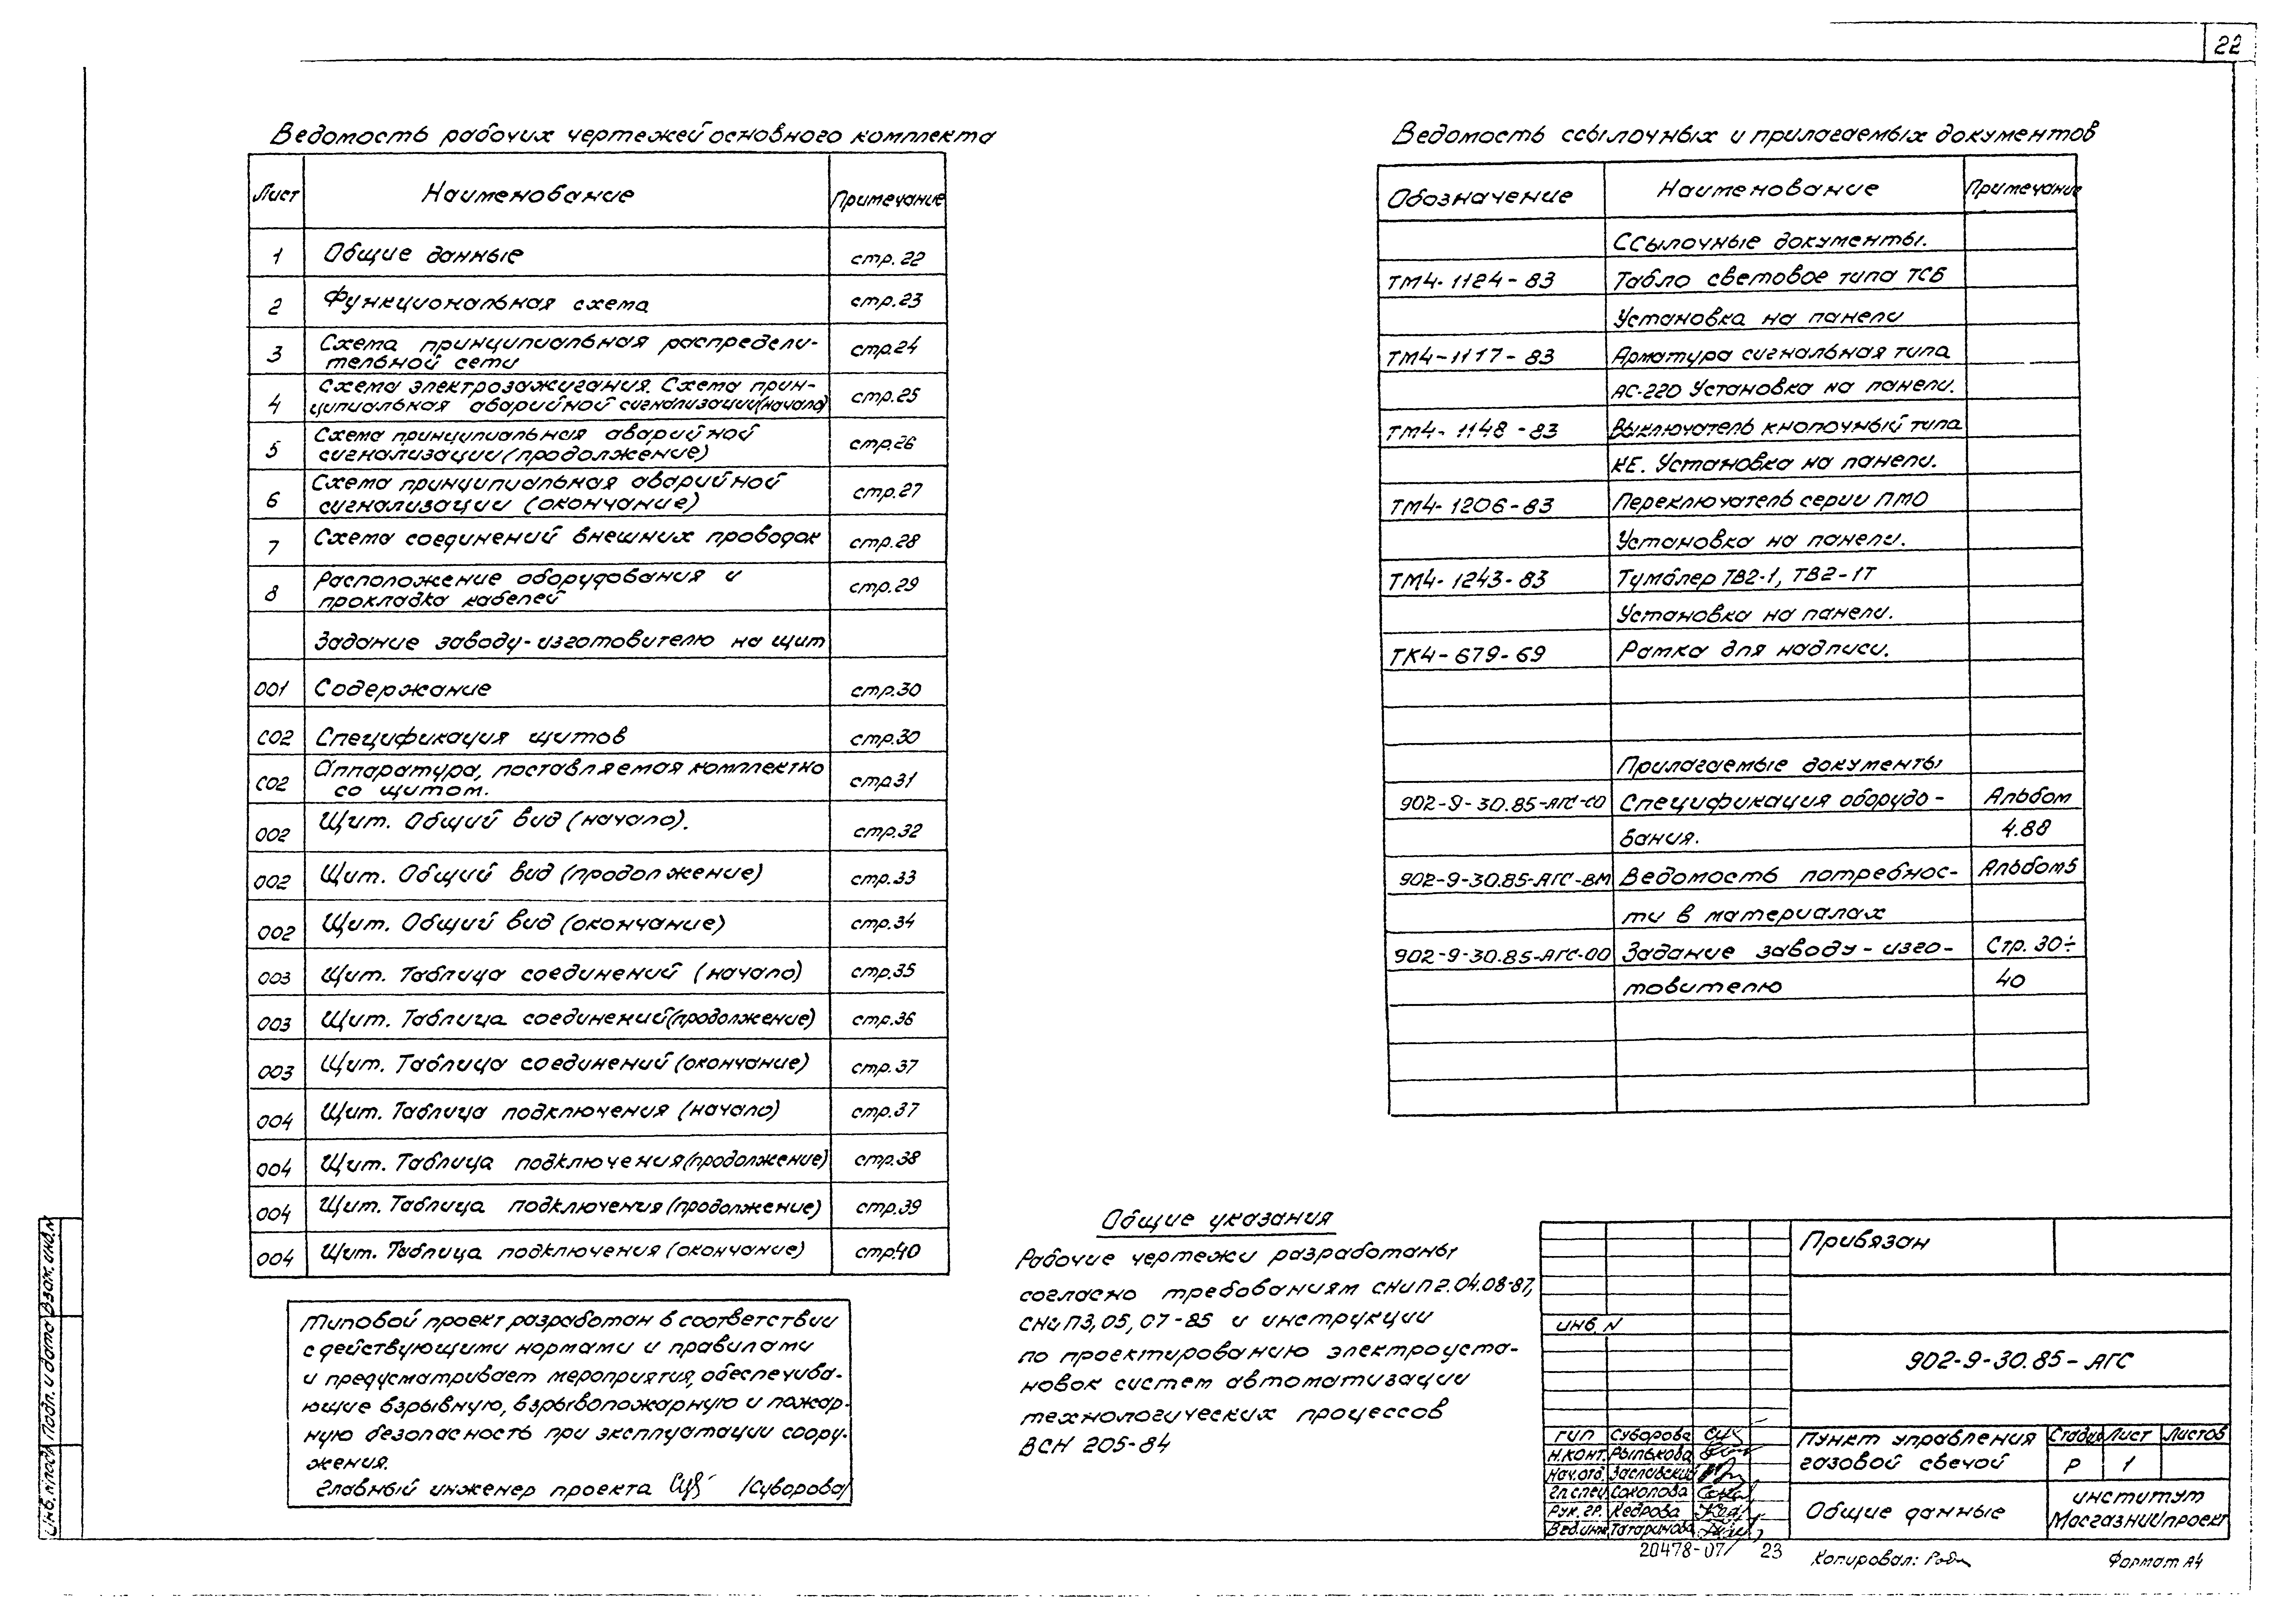 22
Ведомость рабочих чертежей основного комплекта
Лист Наименование Примечание
1 Общие данные стр. 22
2 Функциональная схема стр.23
3 Схема принципиальная распредели-
тельной сети стр.24
4 Схема электрозажигания. Схема прин-
ципиальная аварийной сигнализации(начало) стр.25
5 Схема принципиальная аварийной
сигнализации (продолжение) стр.26
6 Схема принципиальная аварийной
сигнализации (окончание) стр.27
7 Схема соединений внешних проводок стр.28
8 Расположение оборудования и
прокладка кабелей стр.29
Задание заводу-изготовителю на щит
001 Содержание стр.30
С02 Спецификация щитов стр.30
С02 Аппаратура, поставляемая комплектно
со щитом. стр.31
002 Щит. Общий вид (начало). стр.32
002 Щит. Общий вид (продолжение) стр.33
002 Щит. Общий вид (окончание) стр.34
003 Щит. Таблица соединений (начало) стр.35
003 Щит. Таблица соединений(продолжение) стр.36
003 Щит. Таблица соединений (окончание) стр.37
004 Щит. Таблица подключения (начало) стр.37
004 Щит. Таблица подключения(продолжение) стр.38
004 Щит. Таблица подключения (продолжение) стр.39
004 Щит. Таблица подключения (окончание) стр.40
Типовой проект разработан в соответствии
с действующими нормами и правилами
и предусматривает мероприятия, обеспечива-
ющие взрывную, взрывопожарную и пожар-
ную безопасность при эксплуатации соору-
жения.
Главный инженер проекта /Суворова/
Ведомость ссылочных и прилагаемых документов
Обозначение Наименование Примечание
Ссылочные документы.
ТМ4-1124-83 Табло световое типа ТСБ
Установка на панели
ТМ4-1117-83 Арматура сигнальная типа
АС-220 Установка на панели.
ТМ4-1148-83 Выключатель кнопочный типа
КЕ. Установка на панели.
ТМ4-1206-83 Переключатель серии ПМО
Установка на панели.
ТМ4-1243-83 Тумблер ТВ2-1, ТВ2-1Т
Установка на панели.
ТК4-679-69 Рамка для надписи.
Прилагаемые документы
902-9-30.85-АГС-СО Спецификация оборудо- Альбом
вания. 4.88
902-9-30.85-АГС-ВМ Ведомость потребнос- Альбом5
ти в материалах
902-9-30.85-АГС-00 Задание заводу-изго- Стр. 30÷
товителю 40
Общие указания
Рабочие чертежи разработаны
согласно требованиям СНиП 2.04.08-87,
СНиП3,05,07-85 и инструкции
по проектированию электроуста-
новок систем автоматизации
технологических процессов
ВСН 205-84
Привязан
инв. N
902-9-30.85-АГС
ГИП Суворова
Н.конт. Рыпькова
Нач.отд. Заславский
Гл.спец Соколова
Рук.гр. Кедрова
Вед.инж Татаринова
Пункт управления
газовой свечой
Стадия Лист Листов
Р 1
Общие данные
институт
Мосгазниипроект
20478-07/ 23
Копировал:
Формат А4
Инв. N подл. Подп. и дата Взам. инв. N